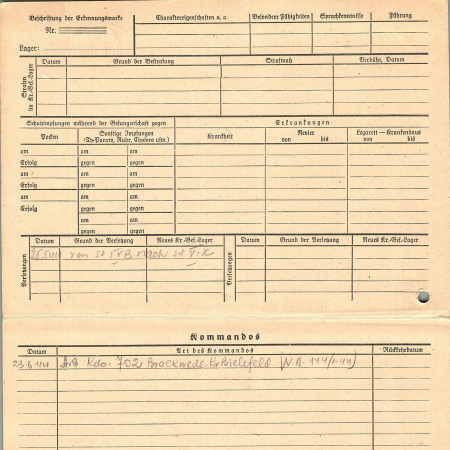 Beschriftung der Erkennungsmarke
Nr.
Lager:
Charaktereigenschaften u. a.
Besondere Fähigkeiten
Sprachkenntnisse
Führung
Strafen im Kr.-Gef.-Lager
Datum
Grund der Bestrafung
Strafmaß
Verbüßt, Datum
Schutzimpfungen während der Gefangenschaft gegen
Erkrankungen
Pocken
Sonstige Impfungen
(Ty-Paraty, Ruhr, Cholera usw.)
Krankheit
Revier
von bis
Lazarett — Krankenhaus
von bis
am am am
Erfolg gegen gegen
am am am
Erfolg gegen gegen
am am am
Erfolg gegen gegen
am am
gegen gegen
Versetzungen
Datum
Grund der Versetzung
Neues Kr.-Gef.-Lager
Versetzungen
Datum
Grund der Versetzung
Neues Kr.-Gef.-Lager
von St VB nach St
Kommandos
Datum
Art des Kommandos
Rückkehrdatum
23.6.44 Kdo. 702 Brackwede Kr Bielefeld